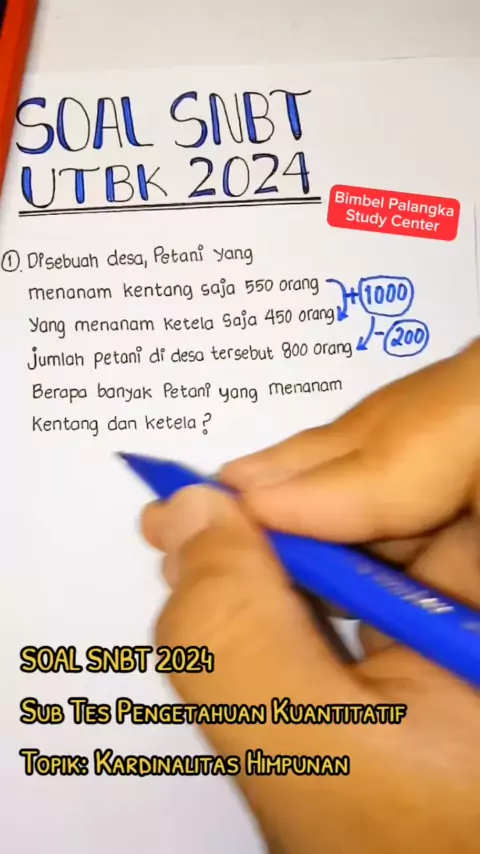 SOAL SNBT
UTBK 2024
Bimbel Palangka
Study Center
1. Disebuah desa, Petani yang
menanam kentang saja 550 orang
Yang menanam ketela saja 450 orang
+1000
Jumlah petani di desa tersebut 800 orang
-200
Berapa banyak Petani yang menanam
Kentang dan ketela?
SOAL SNBT 2024
SUB TES PENGETAHUAN KUANTITATIF
TOPIK: KARDINALITAS HIMPUNAN